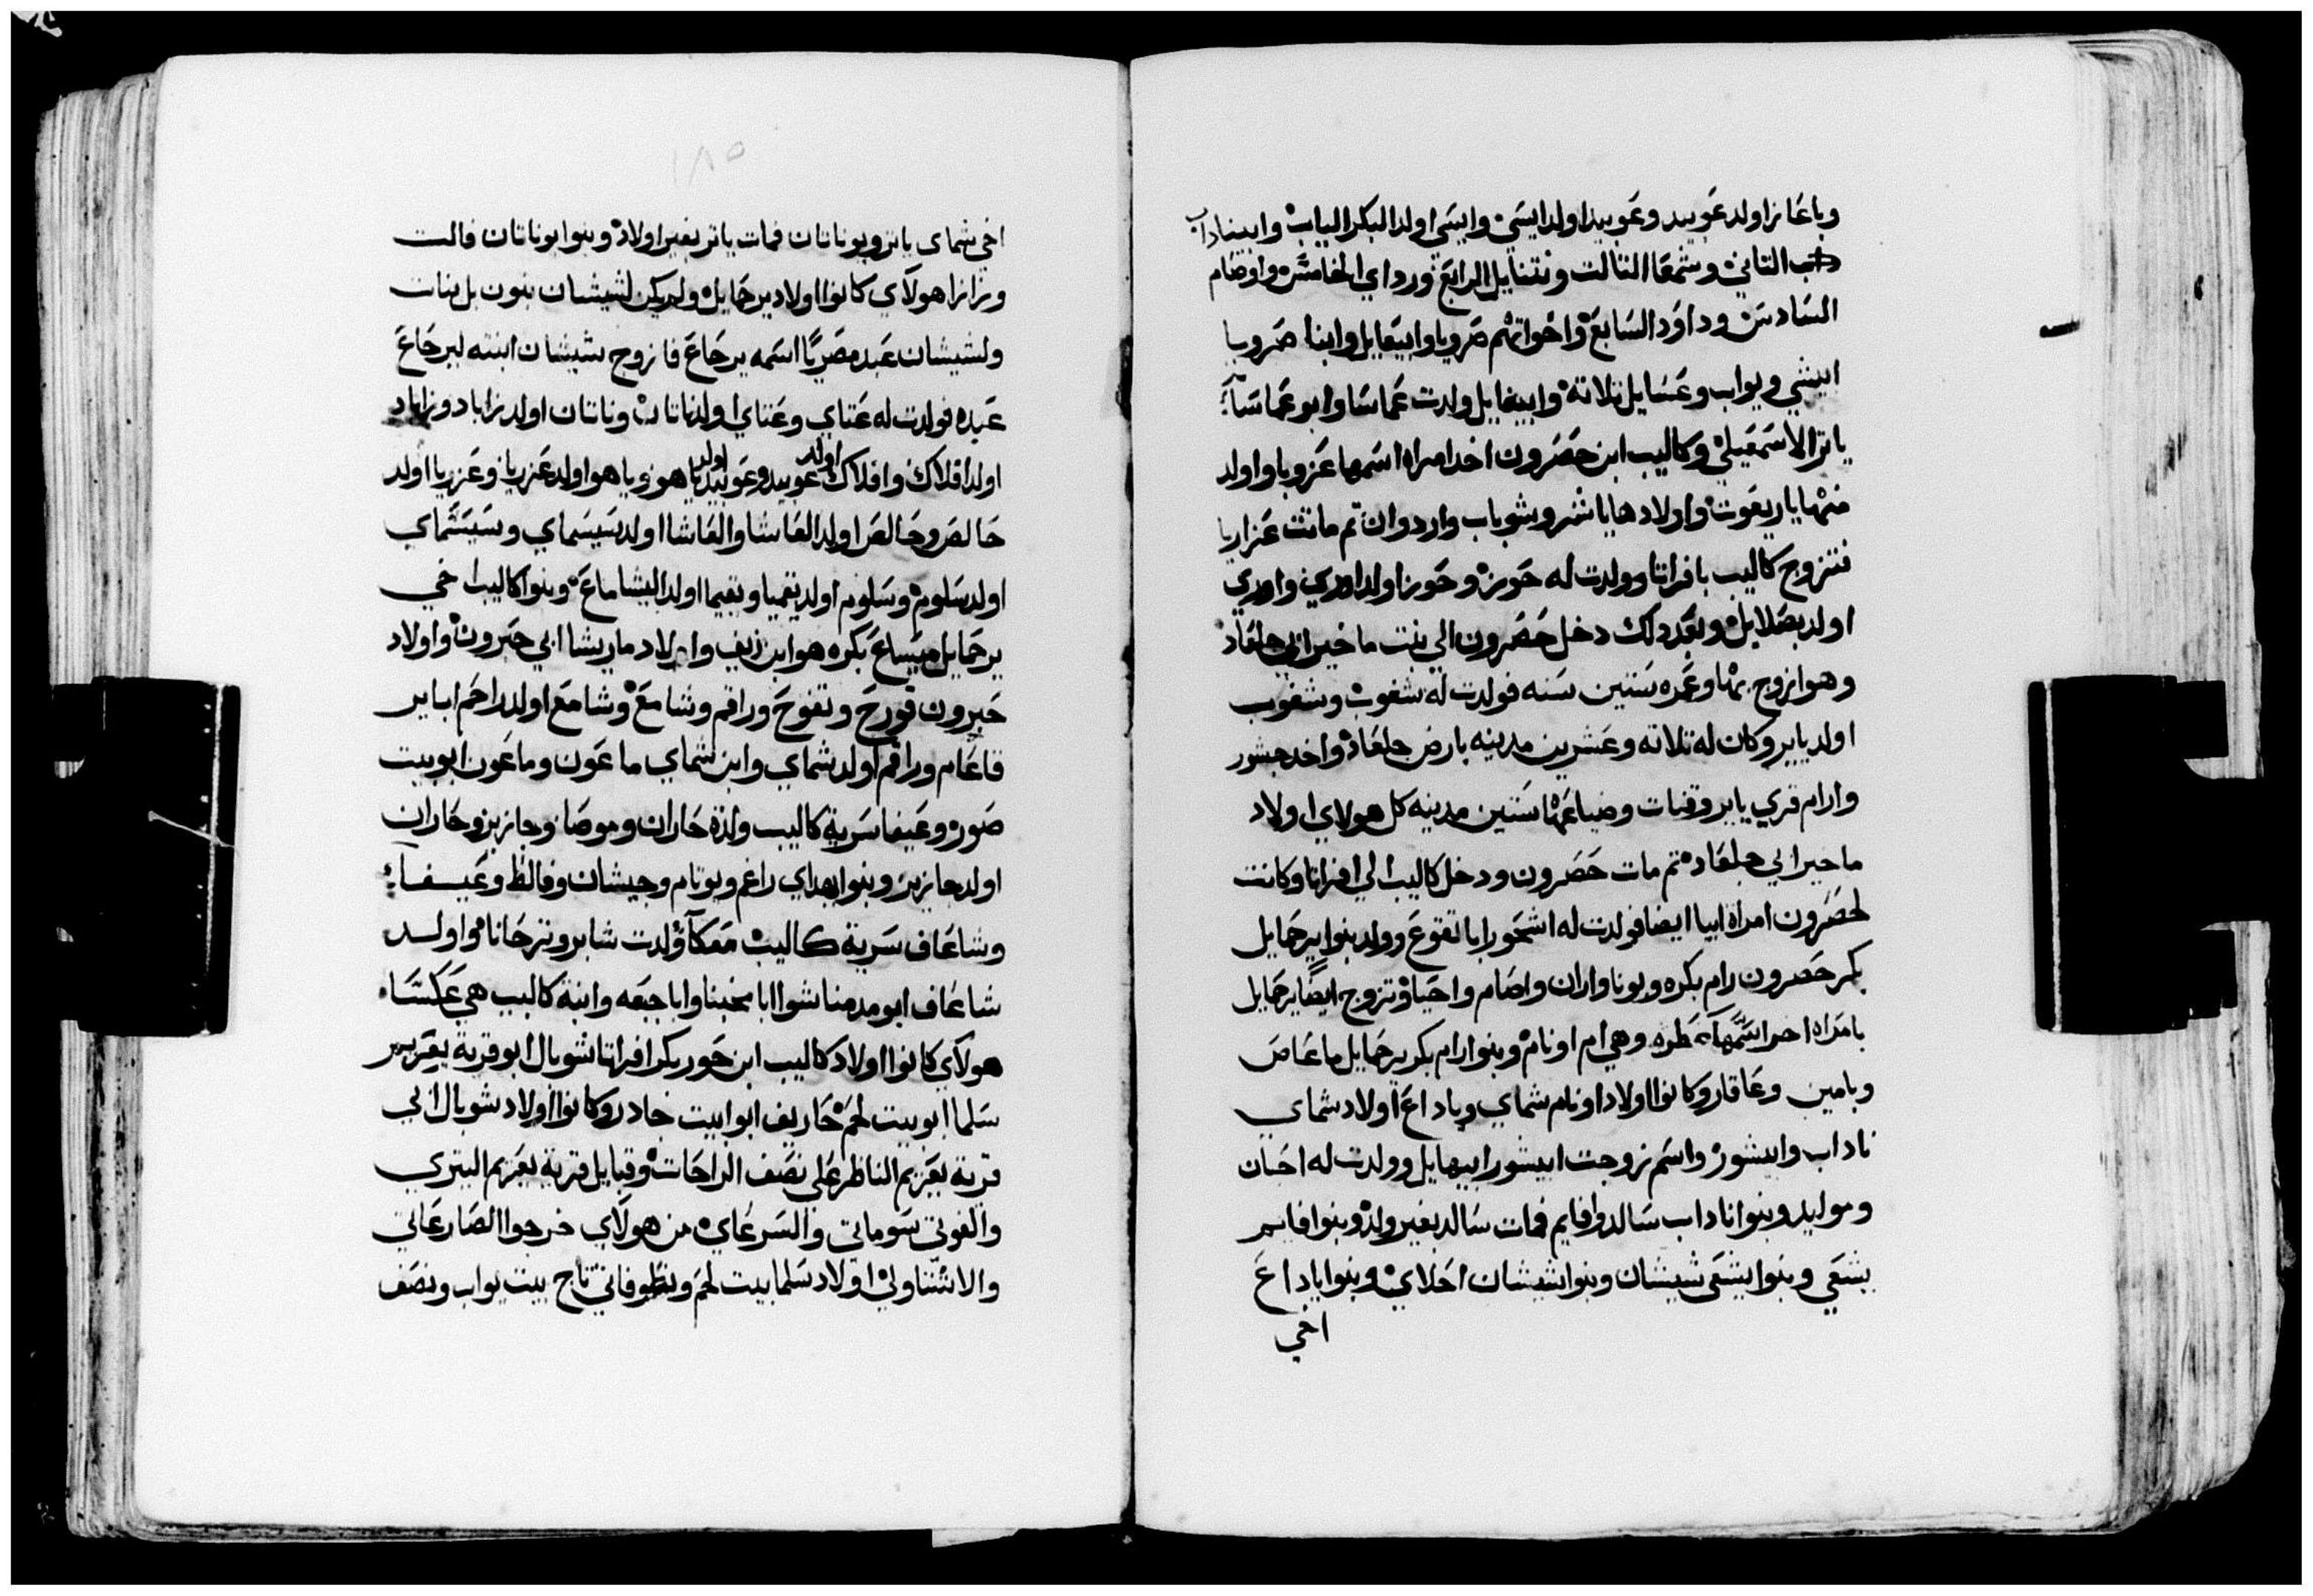 وباعازاولد عوبيد وعوبيد اولد ايسي وايسي اولد البكر الياب وابيناداب
داب التاني وشمعا التالت ونتنايل الرابع ورداي الخامس واوصام
السادس وداود السابع واخواتهم صرويا وابيغايل وابنا صرويا
ابيشي ويواب وعسايل تلاته وابيغايل ولدت عماسا وابو عماسا
ياتر الاسمعيلي وكاليب ابن حصرون اخد امراه اسمها عزوبا واولد
منها ياريعوت واولادها ياشر وشوباب واردوان تم ماتت عزاربا
فتزوج كاليب بافراتا وولدت له حور وحور اولد اوري واوري
اولد بصلايل وبعد دلك دخل حصرون الي بنت ماخير ابي جلعاد
وهو ازوج بها وعمره ستين سنه فولدت له شغوب وشغوب
اولد يايير وكان له تلاته وعشرين مدينه بارض جلعاد واخد جشور
وارام قري يايبر وقنات وضياعها ستين مدينه كل هولاي اولاد
ماخير ابي جلعاد تم مات حصرون ودخل كاليب الي افراتا وكانت
لحصرون امراة ابيا ايضا فولدت له اشحور ابا تقوع وولد بنوا يرحمايل
بكر حصرون رام بكره وبونا واران واصام واحيا وتزوج ايضا يرحمايل
بامراه اخرا اسمها عطره وهي ام اونام وبنوا رام بكر يرحمايل ماعاص
ويامين وعاقار وكانوا اولاد اونام شماي وياداع اولاد شماي
ناداب وابيشور واسم زوجت ابيشور ابيهايل وولدت له احبان
وموليد وبنوا ناداب سالد وافايم فمات سالد بغير ولد وبنوا افايم
يشعي وبنوا يشعي شيشان وبنوا شيشان احلاي وبنوا ياداع
اخي
١٨٥
اخي شماي ياتر ويوناتان فمات ياتر بغير اولاد وبنوا يوناتان فالت
وزازا هولاي كانوا اولاد يرحمايل ولم يكن لشيشان بنون بل بنات
ولشيشان عبد مصريا اسمه يرحاع فازوج شيشان ابنته ليرحاع
عبده فولدت له عتاي وعتاي اولد ناتان وناتان اولد زاباد وزاباد
اولد افلاك وافلاك اولد عوبيد وعوبيد اولد ياهو وياهو اولد عزريا وعزريا اولد
حالص وحالص اولد العاشا والعاشا اولد سيسماي وسيسماي
اولد سلوم وسلوم اولد يقميا ويقيما اولد اليشاماع وبنوا كاليب اخي
يرحمايل ميساع بكره هو ابن زيف واولاد ماريشا ابي حبرون واولاد
حبرون قورح وتفوح وراقم وشامع وشامع اولد راحم ابا ير
قاعام وراقم اولد شماي وابن شماي ماعون وماعون ابو بيت
صور وعيفا سرية كاليب ولدة حاران وموصا وجازيز وحاران
اولد جازيز وبنوا يهداي راغم ويوتام وجيشان وفالط وعيفا
وشاعاف سرية كاليب معكا ولدت شابر وترحانا واولد
شاعاف ابو مدمنا شوا ابا مخبنا وابا جبعه وابنة كاليب هي عكسا
هولاي كانوا اولاد كاليب ابن حور بكر افراتا شوبال ابو قرية يعريم
سلما ابو بيت لحم حاريف ابو بيت جادر وكانوا اولاد شوبال ابي
قرية يعريم الناظر علي نصف الراحات وقبايل قرية يعريم اليتري
والفوتي سوماتي والسرعاي من هولاي خرجوا الصارعاتي
والاشتاولي اولاد سلما بيت لحم ونطوفاتي تاج بيت يواب ونصف